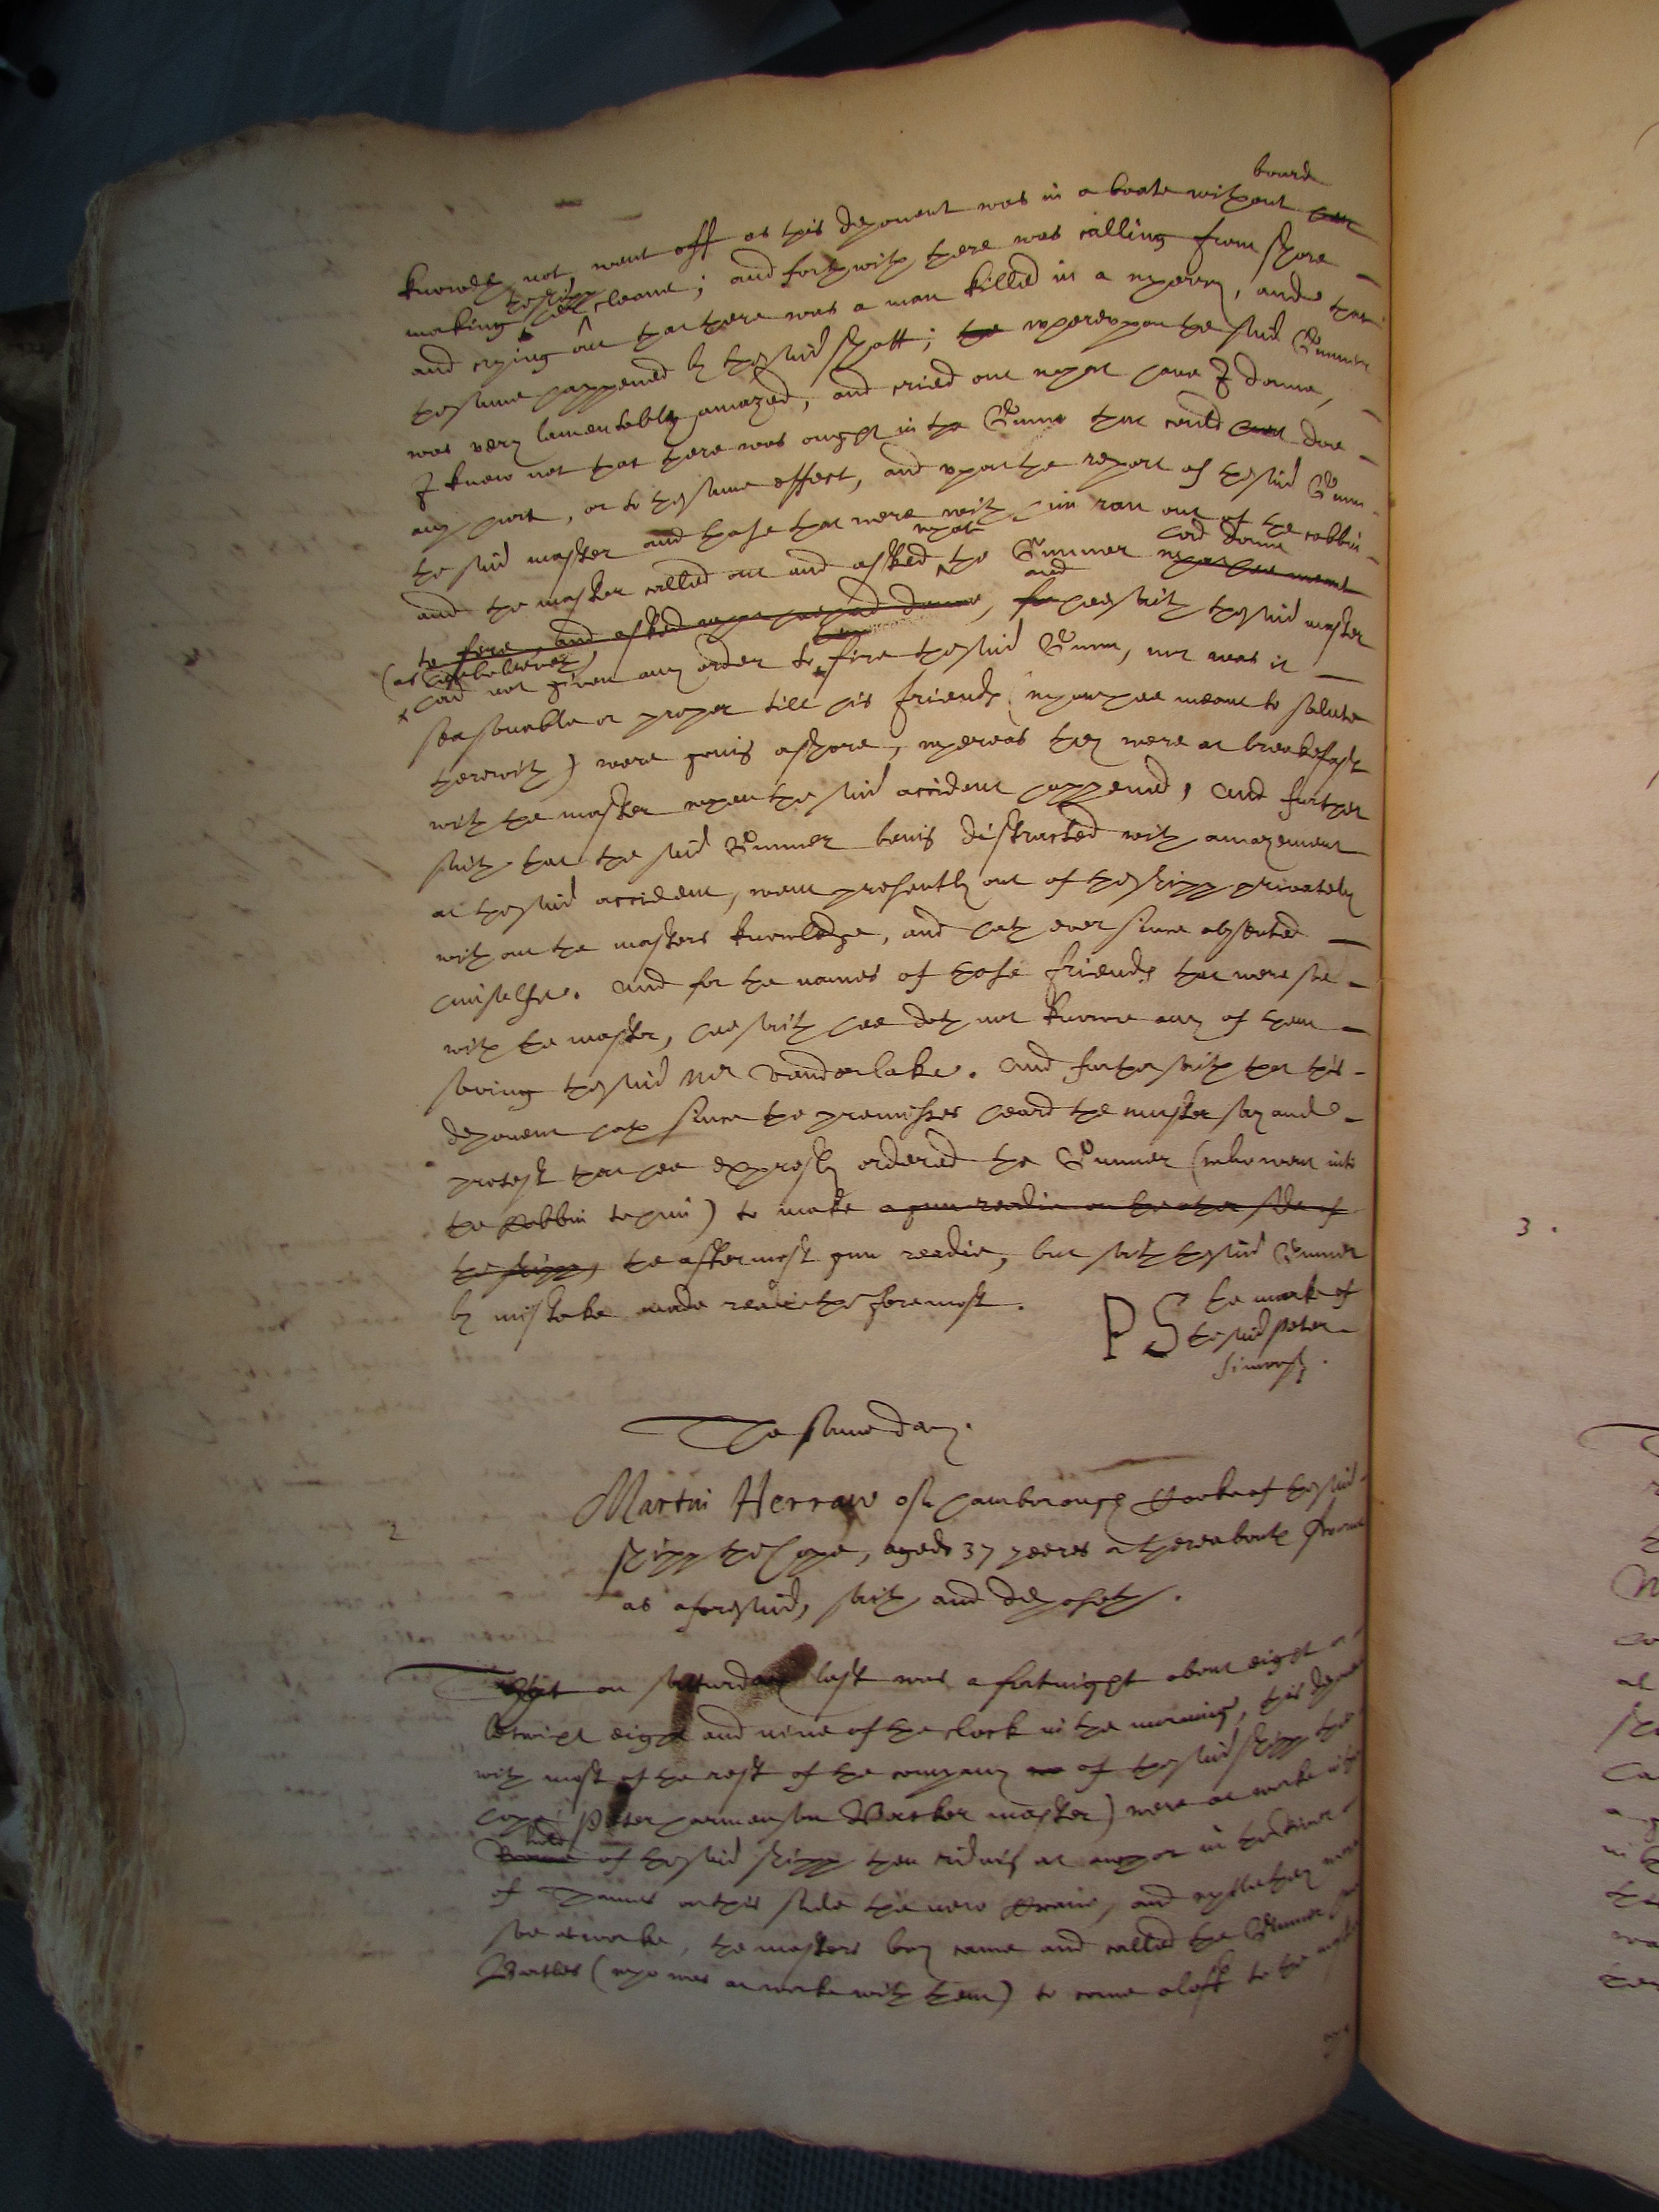 board
knoweth not, went off as this deponent was in a boate without
making the shipp cleane; and forthwith there was calling from shore
and crying out that there was a man killed in a wherry, and that
the same happened by the said shott; the whereupon the said Gunner
was very lamentably amazed, and cried out what have I donne,
I knew not that there was ought in the Gunne that could doe
any hurt, or to the same effect, and upon the report of the said Gunn
the said master and those that were with him ran out of the cabbin
and the master called out and asked what the Gunner had donne
to fire, and asked what hee had donne, and hee saith the said master
(as hee beleeveth)
had not given any order to fire the said Gunn, nor was it
seasonable or proper till his friends (whom hee meant to salute
therewith) were going ashore, whereas they were at breakefast
with the master when the said accident happened, And further
saith that the said Gunner being distracted with amazement
at the said accident, went presently out of the shipp privately
without the masters knowledge, and hath ever since absented
himselfe. And for the names of those friends that were soe
with the master, hee saith hee doth not knowe any of them
saving the said Mr Vanderlake. And further saith that this
deponent hath since the premisses heard the master say and
protest that hee expresly ordered the Gunner (who went into
the Cabbin to him) to make a gun readie on the other side of
the shipp, the aftermost gun readie, but saith the said Gunner
by mistake made readie the foremost.
P S the marke of
the said Peter
Simonson.
The same day.
2
Martin Herraw of Hamborough Cooke of the said
shipp the Hope, aged 37 yeeres or thereabouts sworne
as aforesaid, saith and deposeth.
That on satturday last was a fortnight about eight or
betwixt eight and nine of the clock in the morning, this deponent
with most of the rest of the company of the said shipp the
Hope (Peter Harmenson Backer master) were at worke in the
hold of the said shipp then riding at anchor in the River
of Thames on this side the new Crane, and while they were
soe at worke, the masters boy came and called the Gunner
Bartles (who was at worke with them) to come aloft to the